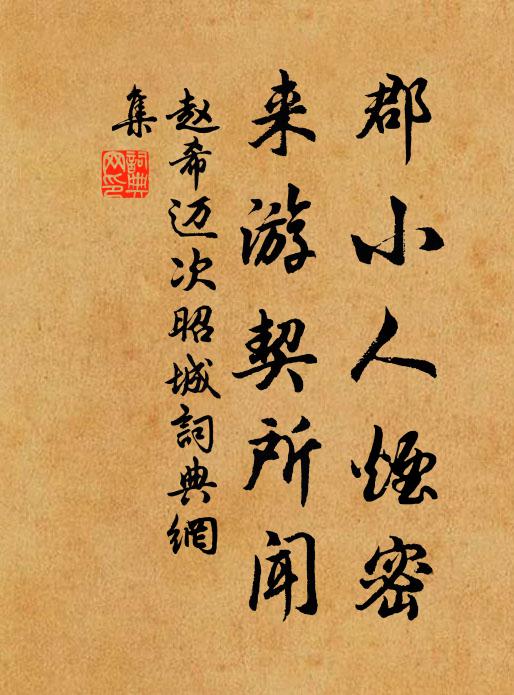 郡小人煙密
来游契所闻
赵希迈次昭城詞典網
集
詞典网印